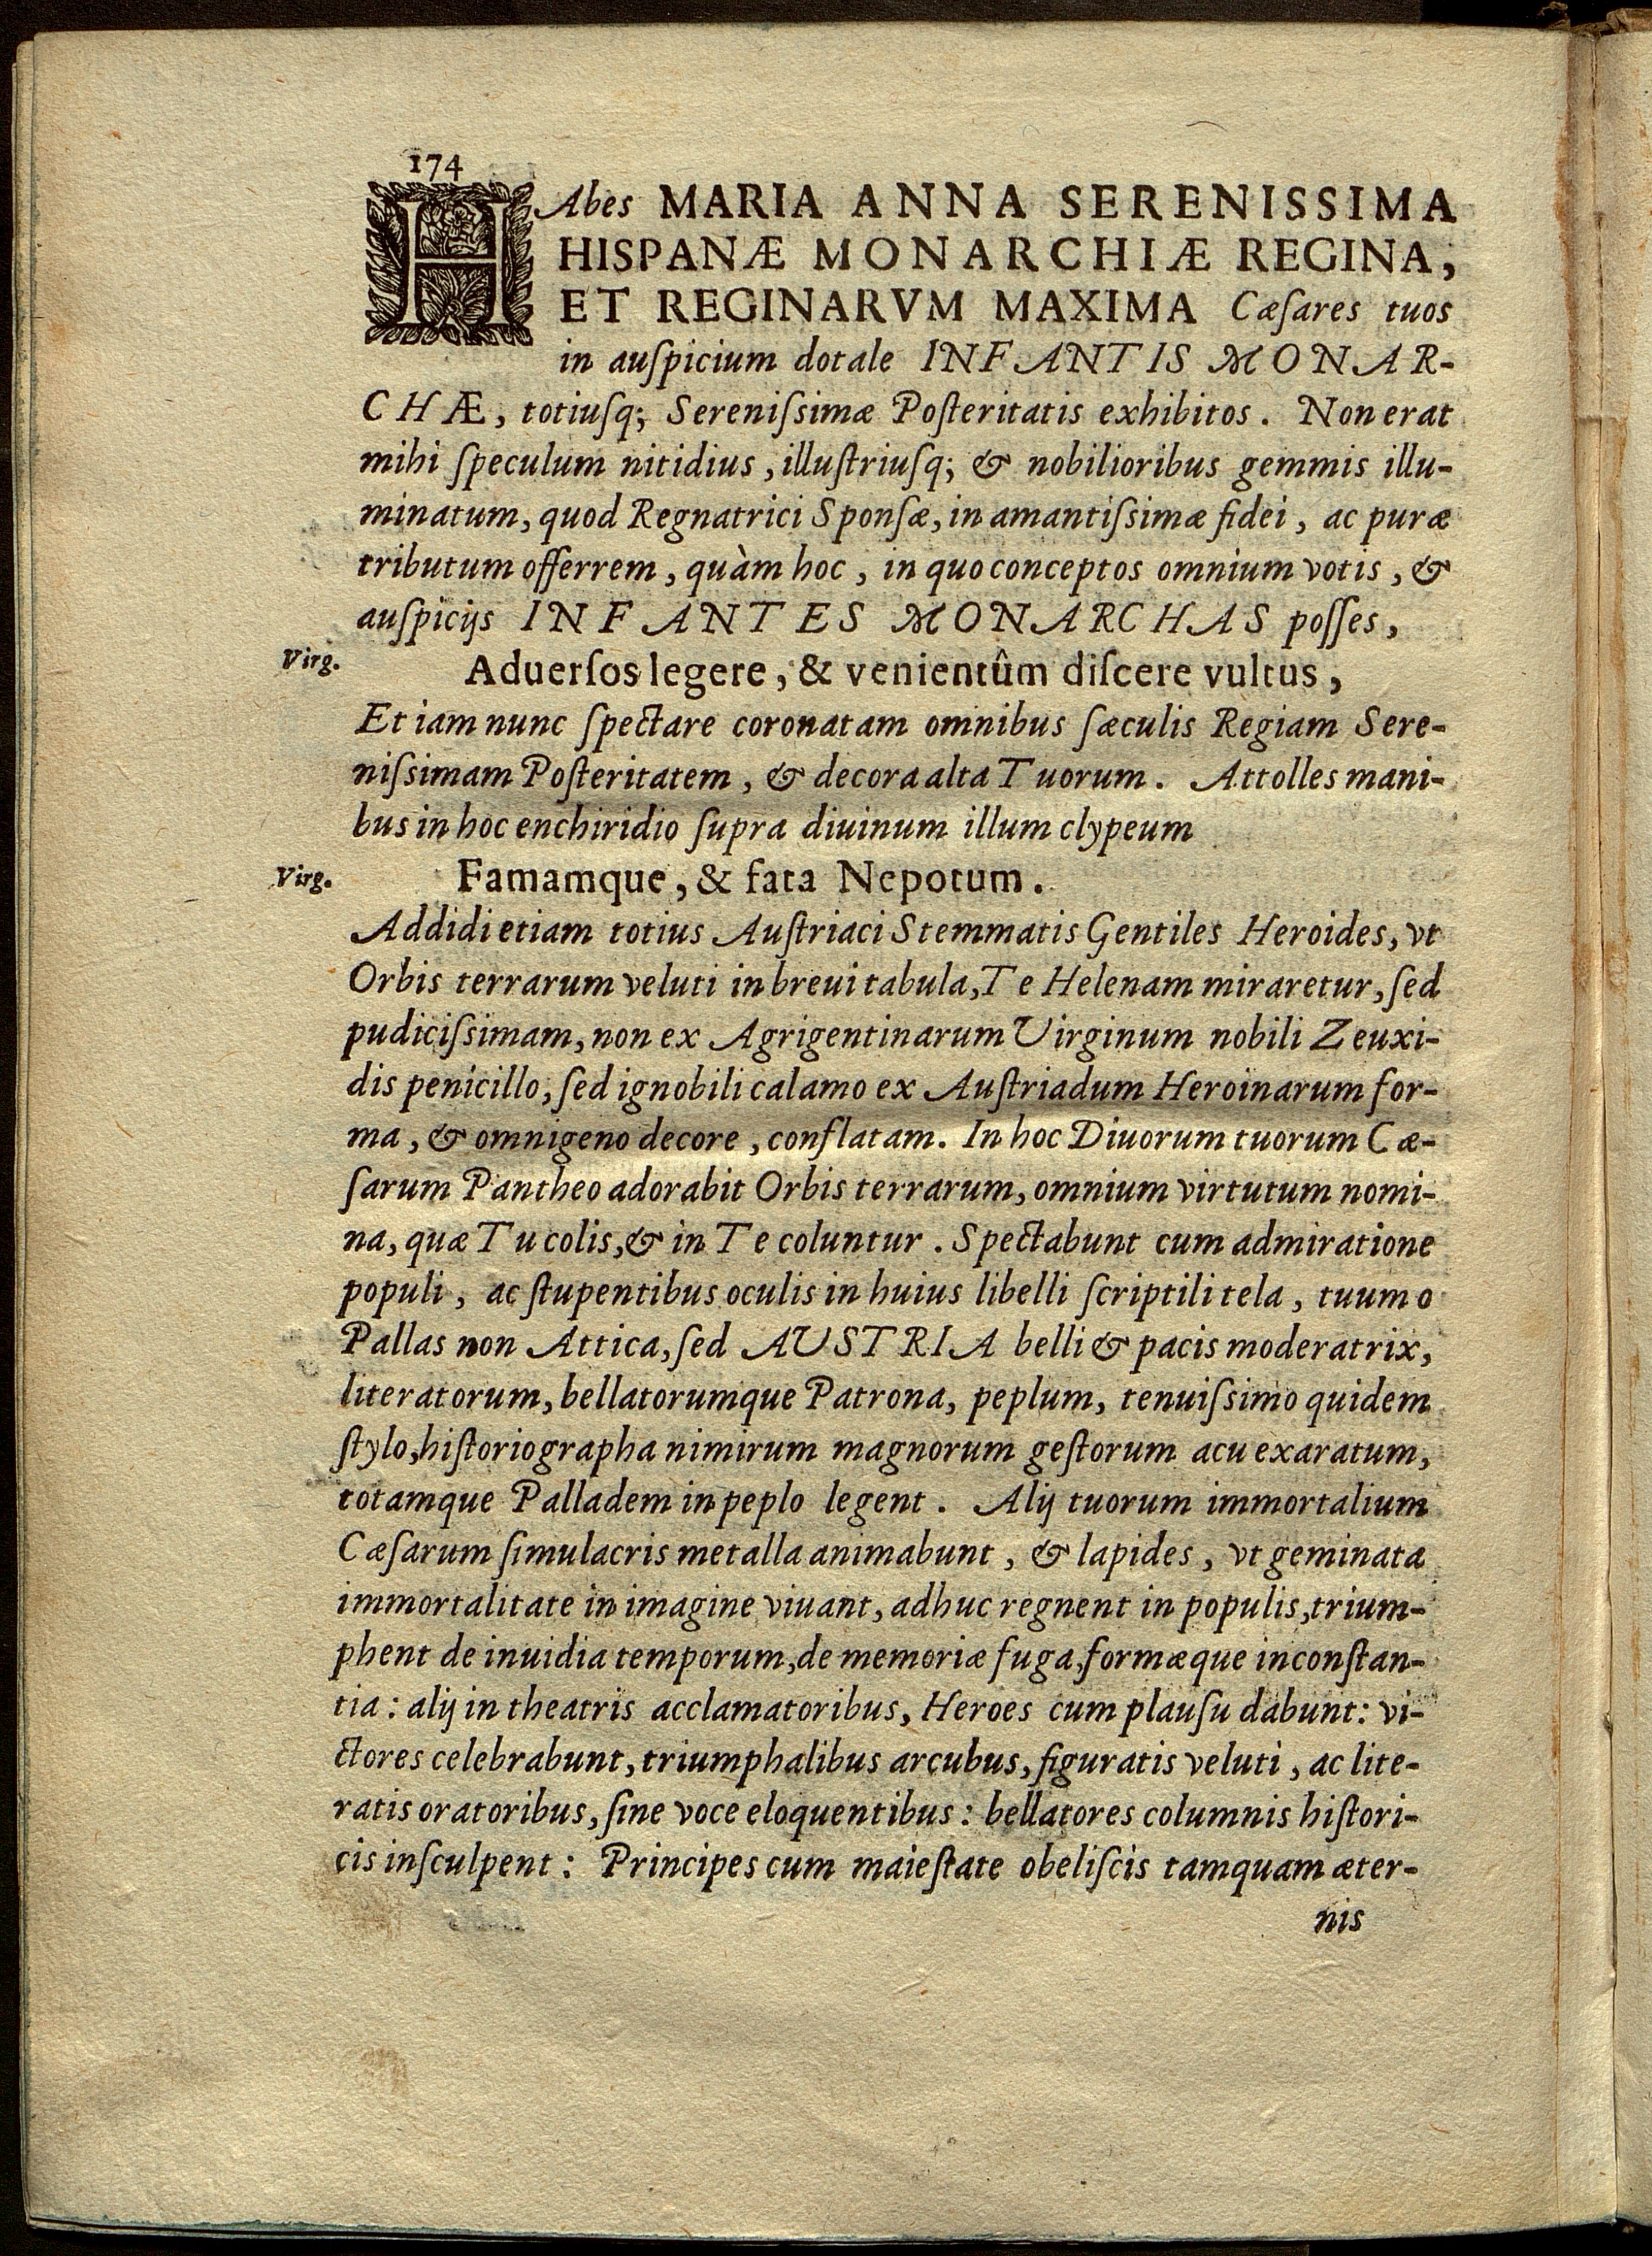 174
HAbes MARIA ANNA SERENISSIMA
HISPANÆ MONARCHIÆ REGINA,
ET REGINARVM MAXIMA Cæſares tuos
in auſpicium dotale INFANTIS MONAR-
CHÆ, totiuſq; Sereniſsimæ Poſteritatis exhibitos. Non erat
mihi ſpeculum nitidius, illuſtriuſq; & nobilioribus gemmis illu-
minatum, quod Regnatrici Sponſæ, in amantiſsimæ fidei, ac puræ
tributum offerrem, quàm hoc, in quo conceptos omnium votis, &
auſpicijs INFANTES MONARCHAS poſſes,
Virg. Aduerſos legere, & venientûm diſcere vultus,
Et iam nunc ſpectare coronatam omnibus ſæculis Regiam Sere-
niſsimam Poſteritatem, & decora alta Tuorum. Attolles mani-
bus in hoc enchiridio ſupra diuinum illum clypeum
Virg. Famamque, & fata Nepotum.
Addidi etiam totius Auſtriaci Stemmatis Gentiles Heroides, vt
Orbis terrarum veluti in breui tabula, Te Helenam miraretur, ſed
pudiciſsimam, non ex Agrigentinarum Virginum nobili Zeuxi-
dis penicillo, ſed ignobili calamo ex Auſtriadum Heroinarum for-
ma, & omnigeno decore, conflatam. In hoc Diuorum tuorum Cæ-
ſarum Pantheo adorabit Orbis terrarum, omnium virtutum nomi-
na, quæ Tu colis, & in Te coluntur. Spectabunt cum admiratione
populi, ac ſtupentibus oculis in huius libelli ſcriptili tela, tuum o
Pallas non Attica, ſed AUSTRIA belli & pacis moderatrix,
literatorum, bellatorumque Patrona, peplum, tenuiſsimo quidem
ſtylo, hiſtoriographa nimirum magnorum geſtorum acu exaratum,
totamque Palladem in peplo legent. Alij tuorum immortalium
Cæſarum ſimulacris metalla animabunt, & lapides, vt geminata
immortalitate in imagine viuant, adhuc regnent in populis, trium-
phent de inuidia temporum, de memoriæ fuga, formæque inconſtan-
tia: alij in theatris acclamatoribus, Heroes cum plauſu dabunt: vi-
ctores celebrabunt, triumphalibus arcubus, figuratis veluti, ac lite-
ratis oratoribus, ſine voce eloquentibus: bellatores columnis hiſtori-
cis inſculpent: Principes cum maieſtate obeliſcis tamquam æter-
nis